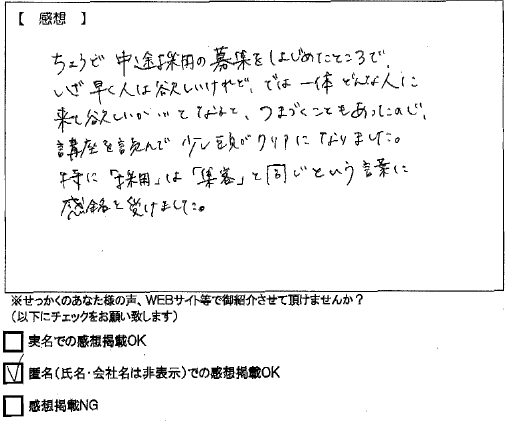 【 感想 】
ちょうど 中途採用の募集をはじめたところで、
いざ早く人は欲しいけれど、では 一体 どんな人に
来て欲しいか…となると、つまづくこともあったので、
講座を読んで 少し頭がクリアになりました。
特に「採用」は「集客」と同じという言葉に
感銘を受けました。
※せっかくのあなた様の声、WEBサイト等で御紹介させて頂けませんか？
(以下にチェックをお願い致します)
実名での感想掲載OK
匿名(氏名・会社名は非表示)での感想掲載OK
感想掲載NG